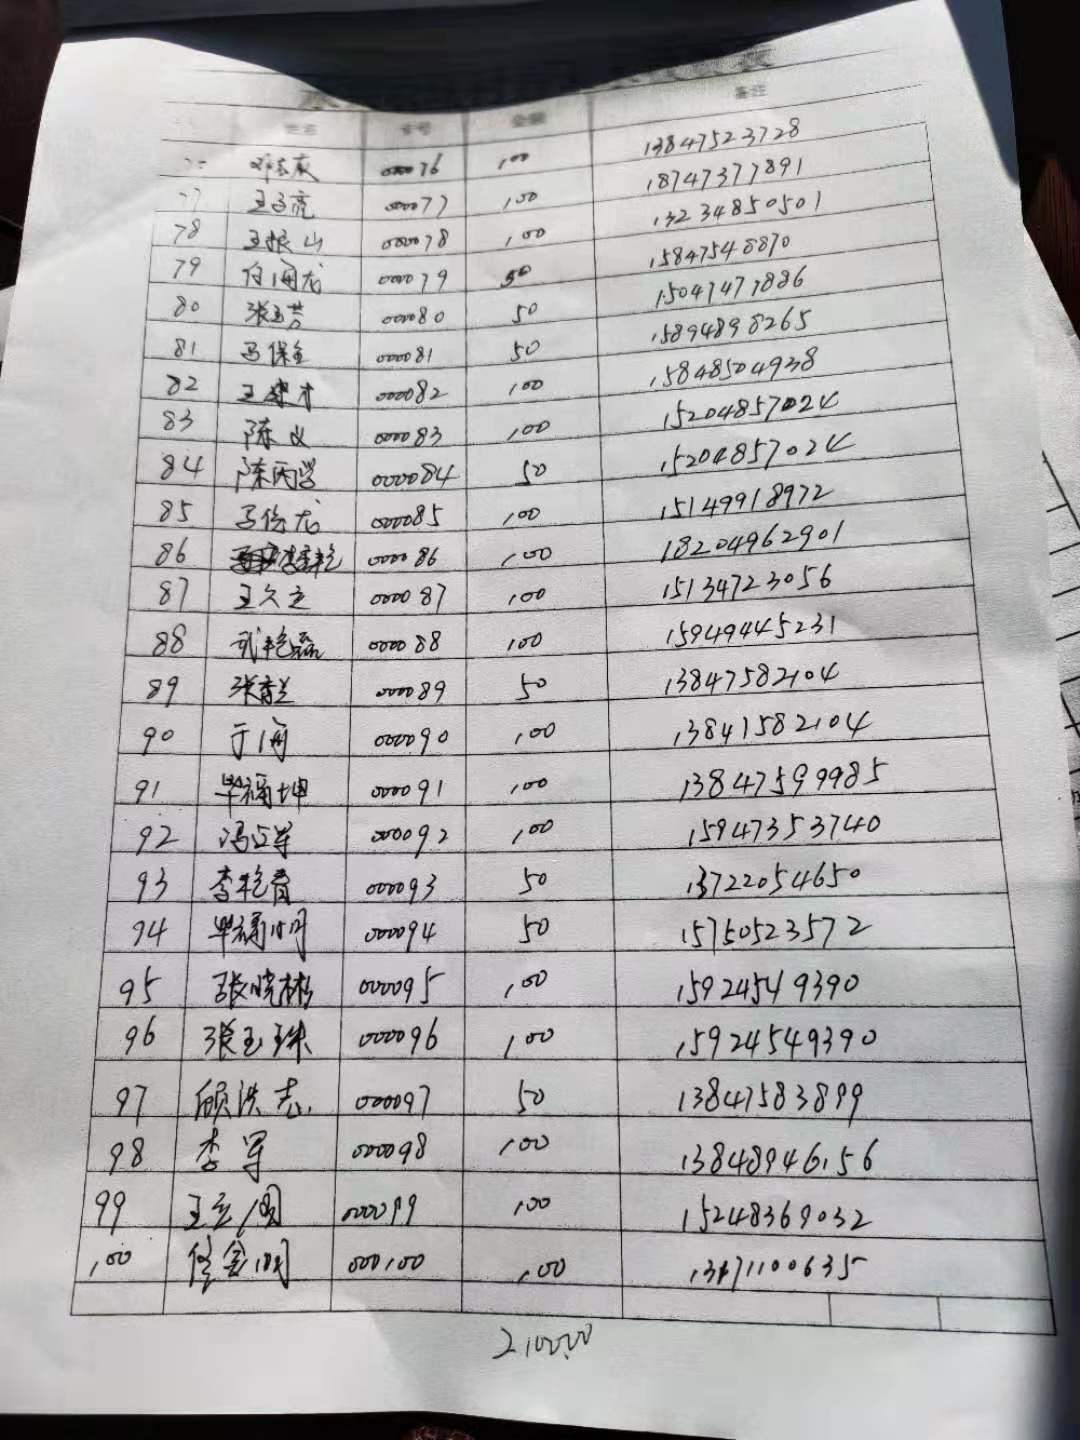 姓名 卡号 金额 备注
000076 100 13847523728
77 王子亮 000077 100 18747377891
78 王振山 000078 100 13234850501
79 付海龙 000079 50 15847548870
80 张玉芳 000080 50 15047477886
81 马保全 000081 50 15894898265
82 王建才 000082 100 15848504938
83 陈义 000083 100 15204857024
84 陈丙学 000084 50 15204857024
85 马俊龙 000085 100 15149918972
86 000086 100 18204962901
87 王久立 000087 100 15134723056
88 武艳磊 000088 100 15949445231
89 张青兰 000089 50 13847582104
90 于海 000090 100 13841582104
91 毕福坤 000091 100 13847599985
92 冯立军 000092 100 15947353740
93 李艳青 000093 50 13722054650
94 毕福明 000094 50 15750523572
95 张晓彬 000095 100 15924549390
96 张玉珠 000096 100 15924549390
97 顾洪志 000097 50 13847583899
98 李军 000098 100 13848946156
99 王立国 000099 100 15248369032
100 佟金明 000100 100 13171100635
2100.00